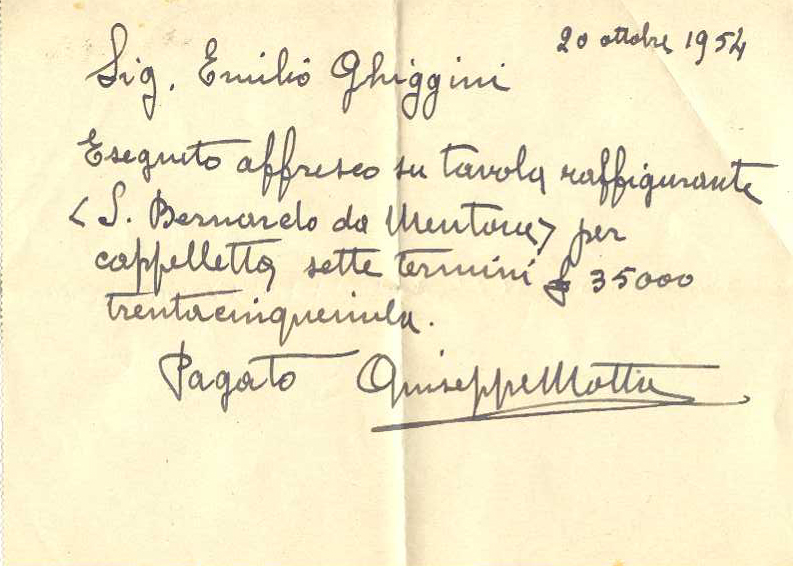 20 ottobre 1954
Sig. Emilio Ghiggini
Eseguito affresco su tavola raffigurante
< S. Bernardo da Mentone > per
cappelletta sette termini £ 35000
trentacinquemila.
Pagato Giuseppe Motta